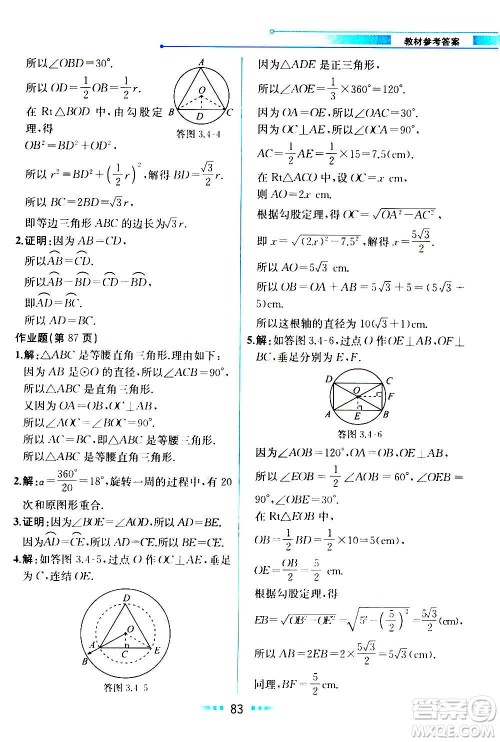 教材参考答案
所以∠OBD=30°.
所以 OD=1/2 OB=1/2 r.
在 Rt△BOD 中,由勾股定
理,得
OB²=BD²+OD²,
A
O
B
D
C
答图 3.4-4
所以 r²=BD²+(1/2 r)², 所以 BD=√3/2 r.
所以 BC=2BD=√3 r,
即等边三角形 ABC 的边长为√3 r.
2.证明:因为 AB=CD,
所以 AB=CD.
所以 AB-BD=CD-BD.
即 AD=BC.
所以 AD=BC.
作业题(第 87 页)
1.解:△ABC 是等腰直角三角形.理由如下:
因为 AB 是⊙O 的直径,所以∠ACB=90°.
所以△ABC 是直角三角形.
又因为 OA=OB,OC⊥AB,
所以∠AOC=∠BOC=90°.
所以 AC=BC,即△ABC 是等腰三角形.
所以△ABC 是等腰直角三角形.
2.解:α=360°/20=18°,旋转一周的过程中,有 20
次和原图形重合.
3.证明:因为∠BOE=∠AOD=∠BOE,
因为AD=CE,所以 AD=CE.
4.解:如答图 3.4-5,过点 O 作 OC⊥AE,垂足
为 C,连结 OE.
D
O
A
B
C
E
答图 3.4-5
因为△ADE 是正三角形,
所以∠AOE=1/3×360°=120°.
因为 OA=OE,所以∠OAC=30°.
因为 OC⊥AE,所以∠OCA=90°,
AC=1/2 AE=1/2×15=7.5(cm).
在 Rt△ACO 中,设 OC=x cm,
则 OA=2x cm.
根据勾股定理,得 OC=√(OA²-AC²),
即 x=√((2x)²-7.5²), 解得 x=5√3/2.
所以 AO=5√3 cm.
所以 OB=OA+AB=5√3+5√3=10√3
(cm).
所以这根轴的直径为10√3 cm.
5.解:如答图 3.4-6,过点 O 作 OE⊥AB,OF⊥
BC,垂足分别为 E,F.
D
C
O
F
A
E
B
答图 3.4-6
因为∠AOB=120°,
所以∠EOB=1/2∠AOB=60°,∠OEB=90°.
所以∠OBE=30°.
因为 OB=1/2 BD=1/2×10=5(cm),
所以 OE=1/2 OB=5/2 cm.
根据勾股定理,得
EB=√(OB²-OE²)=√(5²-(5/2)²)=5√3/2(cm).
所以 AB=2EB=2×5√3/2=5√3(cm).
同理,BF=5/2 cm.
83